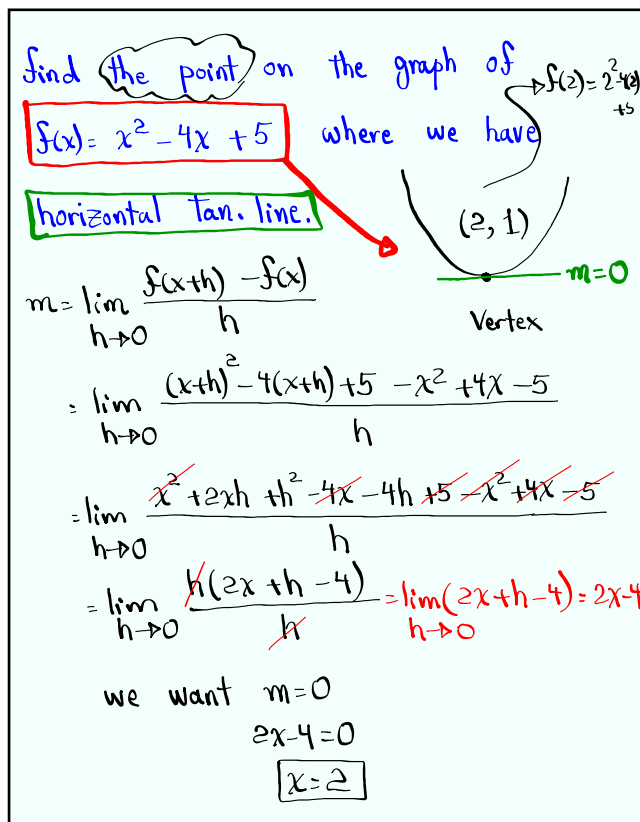 find the point on the graph of
f(2) = 2² - 4(2)
+5
f(x) = x² - 4x + 5 where we have
horizontal Tan. line.
(2, 1)
m=0
Vertex
m = lim h→0 (f(x+h) - f(x)) / h
= lim h→0 ((x+h)² - 4(x+h) + 5 - x² + 4x - 5) / h
= lim h→0 (x² + 2xh + h² - 4x - 4h + 5 - x² + 4x - 5) / h
= lim h→0 h(2x + h - 4) / h = lim h→0 (2x + h - 4) = 2x - 4
we want m = 0
2x - 4 = 0
x = 2